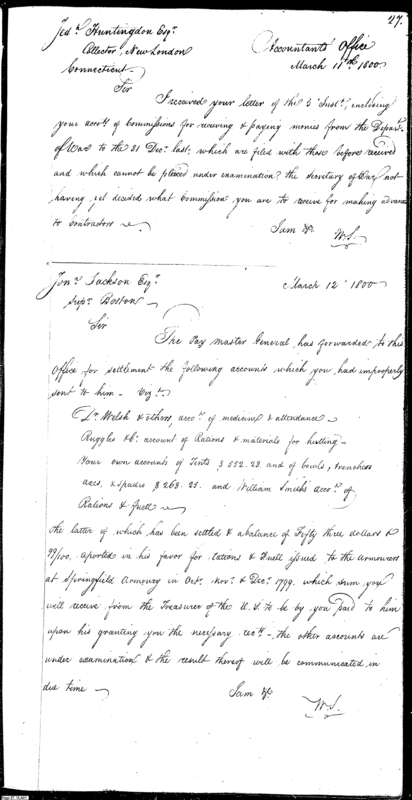 27.
Jedh. Huntingdon Esqr.
Collector, New London
Connecticut
Accountants Office
March 11th 1800
Sir
I received your letter of the 5 Inst., enclosing
your accots. of Commissions for receiving & paying monies from the Departt.
of War to the 31 Decr. last, which are filed with those before received
and which cannot be placed under examination the Secretary of War not
having yet decided what Commission you are to receive for making advances
to Contractors
I am &c.
W.S.
Jonn. Jackson Esqr.
Supt. Boston
March 12 1800
Sir
The Pay Master General has forwarded to this
Office for settlement the following accounts which you had improperly
sent to him. Vizt.
Dr. Welsh & others, accots. of medicine & attendance
Ruggles &c. account of Rations & materials for hutting
Your own accounts of Tents $552.23. and of bowls, trenchers
axes, & spades $263.25. and William Smith's accots. of
Rations & fuel
the latter of which has been settled & a balance of Fifty three dollars &
99/100, reported in his favor for rations & Fuell issued to the Armourers
at Springfield Armoury in Octr. Novr. & Decr. 1799. which sum you
will receive from the Treasurer of the U.S. to be by you paid to him
upon his granting you the necessary rects. the other accounts are
under examination & the result thereof will be communicated in
due time
I am &c.
W.S.